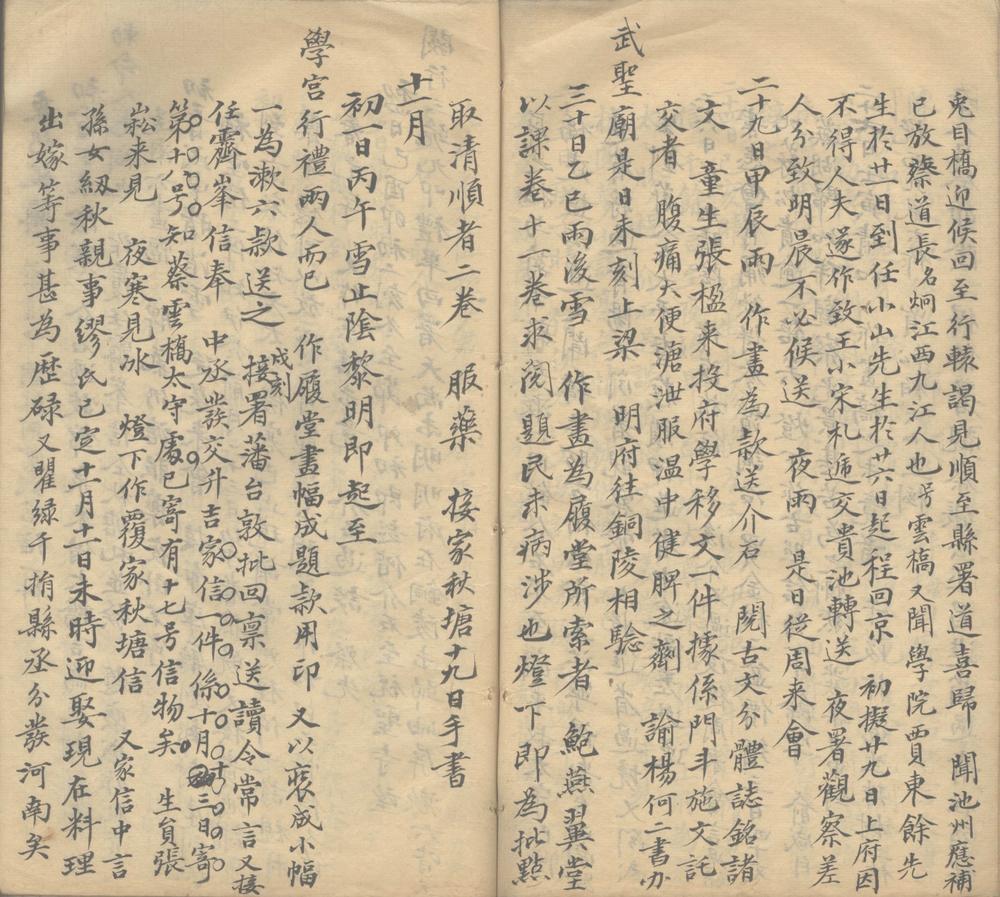 兎目橋迎候回至行轅謁見順至縣署道喜歸　聞池州應補
已放蔡道長名炯江西九江人也号雲槗又聞學院賈東餘先
生於廿一日到任小山先生於廿六日起程回京　初擬廿九日上府因
不得人夫遂作致王小宋札逓交貴池轉送　夜署觀察差
人分致明晨不必候送　夜雨　是日従周来會
二十九日甲辰雨　作畫為款送介石　閲古文分體誌銘諸
文　童生張楹来投府學移文一件據係門斗施文託
交者　腹痛大便溏泄服温中健脾之劑　諭楊何二書办
武聖廟是日未刻上梁　明府往銅陵相驗
三十日乙巳雨後雪　作畫為履堂所索者　鮑燕翼堂
以課卷十一卷求閲題民未病涉也燈下即為批點
取清順者二卷　服藥　接家秋塘十九日手書
十一月
初一日丙午雪止陰黎明即起至
學宫行禮兩人而已　作履堂畫幅成題款用印　又以裘成小幅
一為漱六款送之　戌刻接署藩台敦批回禀送讀令常言又接
任霽峯信奉　中丞發交升吉家信一件係十月三日寄
第十八号知蔡雲槗太守處已寄有十七号信物矣　生員張
崧来見　夜寒見冰　燈下作覆家秋塘信　又家信中言
孫女紉秋親事繆氏已定十二月十一日未時迎娶現在料理
出嫁等事甚為歴碌又瞿緑千捐縣丞分發河南矣